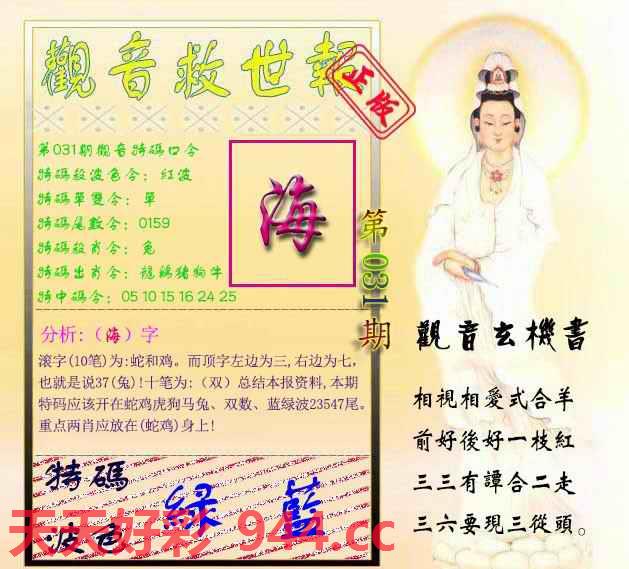 觀音救世報
正版
第031期觀音特碼口令
特碼殺波色令：紅波
特碼單雙令：單
特碼尾數令：0159
特碼殺肖令：兔
特碼出肖令：猴鷄猪狗牛
特中碼令：05 10 15 16 24 25
海
第031期
分析:（海）字
滚字(10笔)为:蛇和鸡。而顶字左边为三,右边为七，
也就是说37(兔)!十笔为:（双）总结本报资料,本期
特码应该开在蛇鸡虎狗马兔、双数、蓝绿波23547尾。
重点两肖应放在(蛇鸡)身上!
特碼
波色
緑 藍
天天好彩 944.cc
觀音玄機書
相視相愛式合羊
前好後好一枝紅
三三有譚合二走
三六要現三從頭。